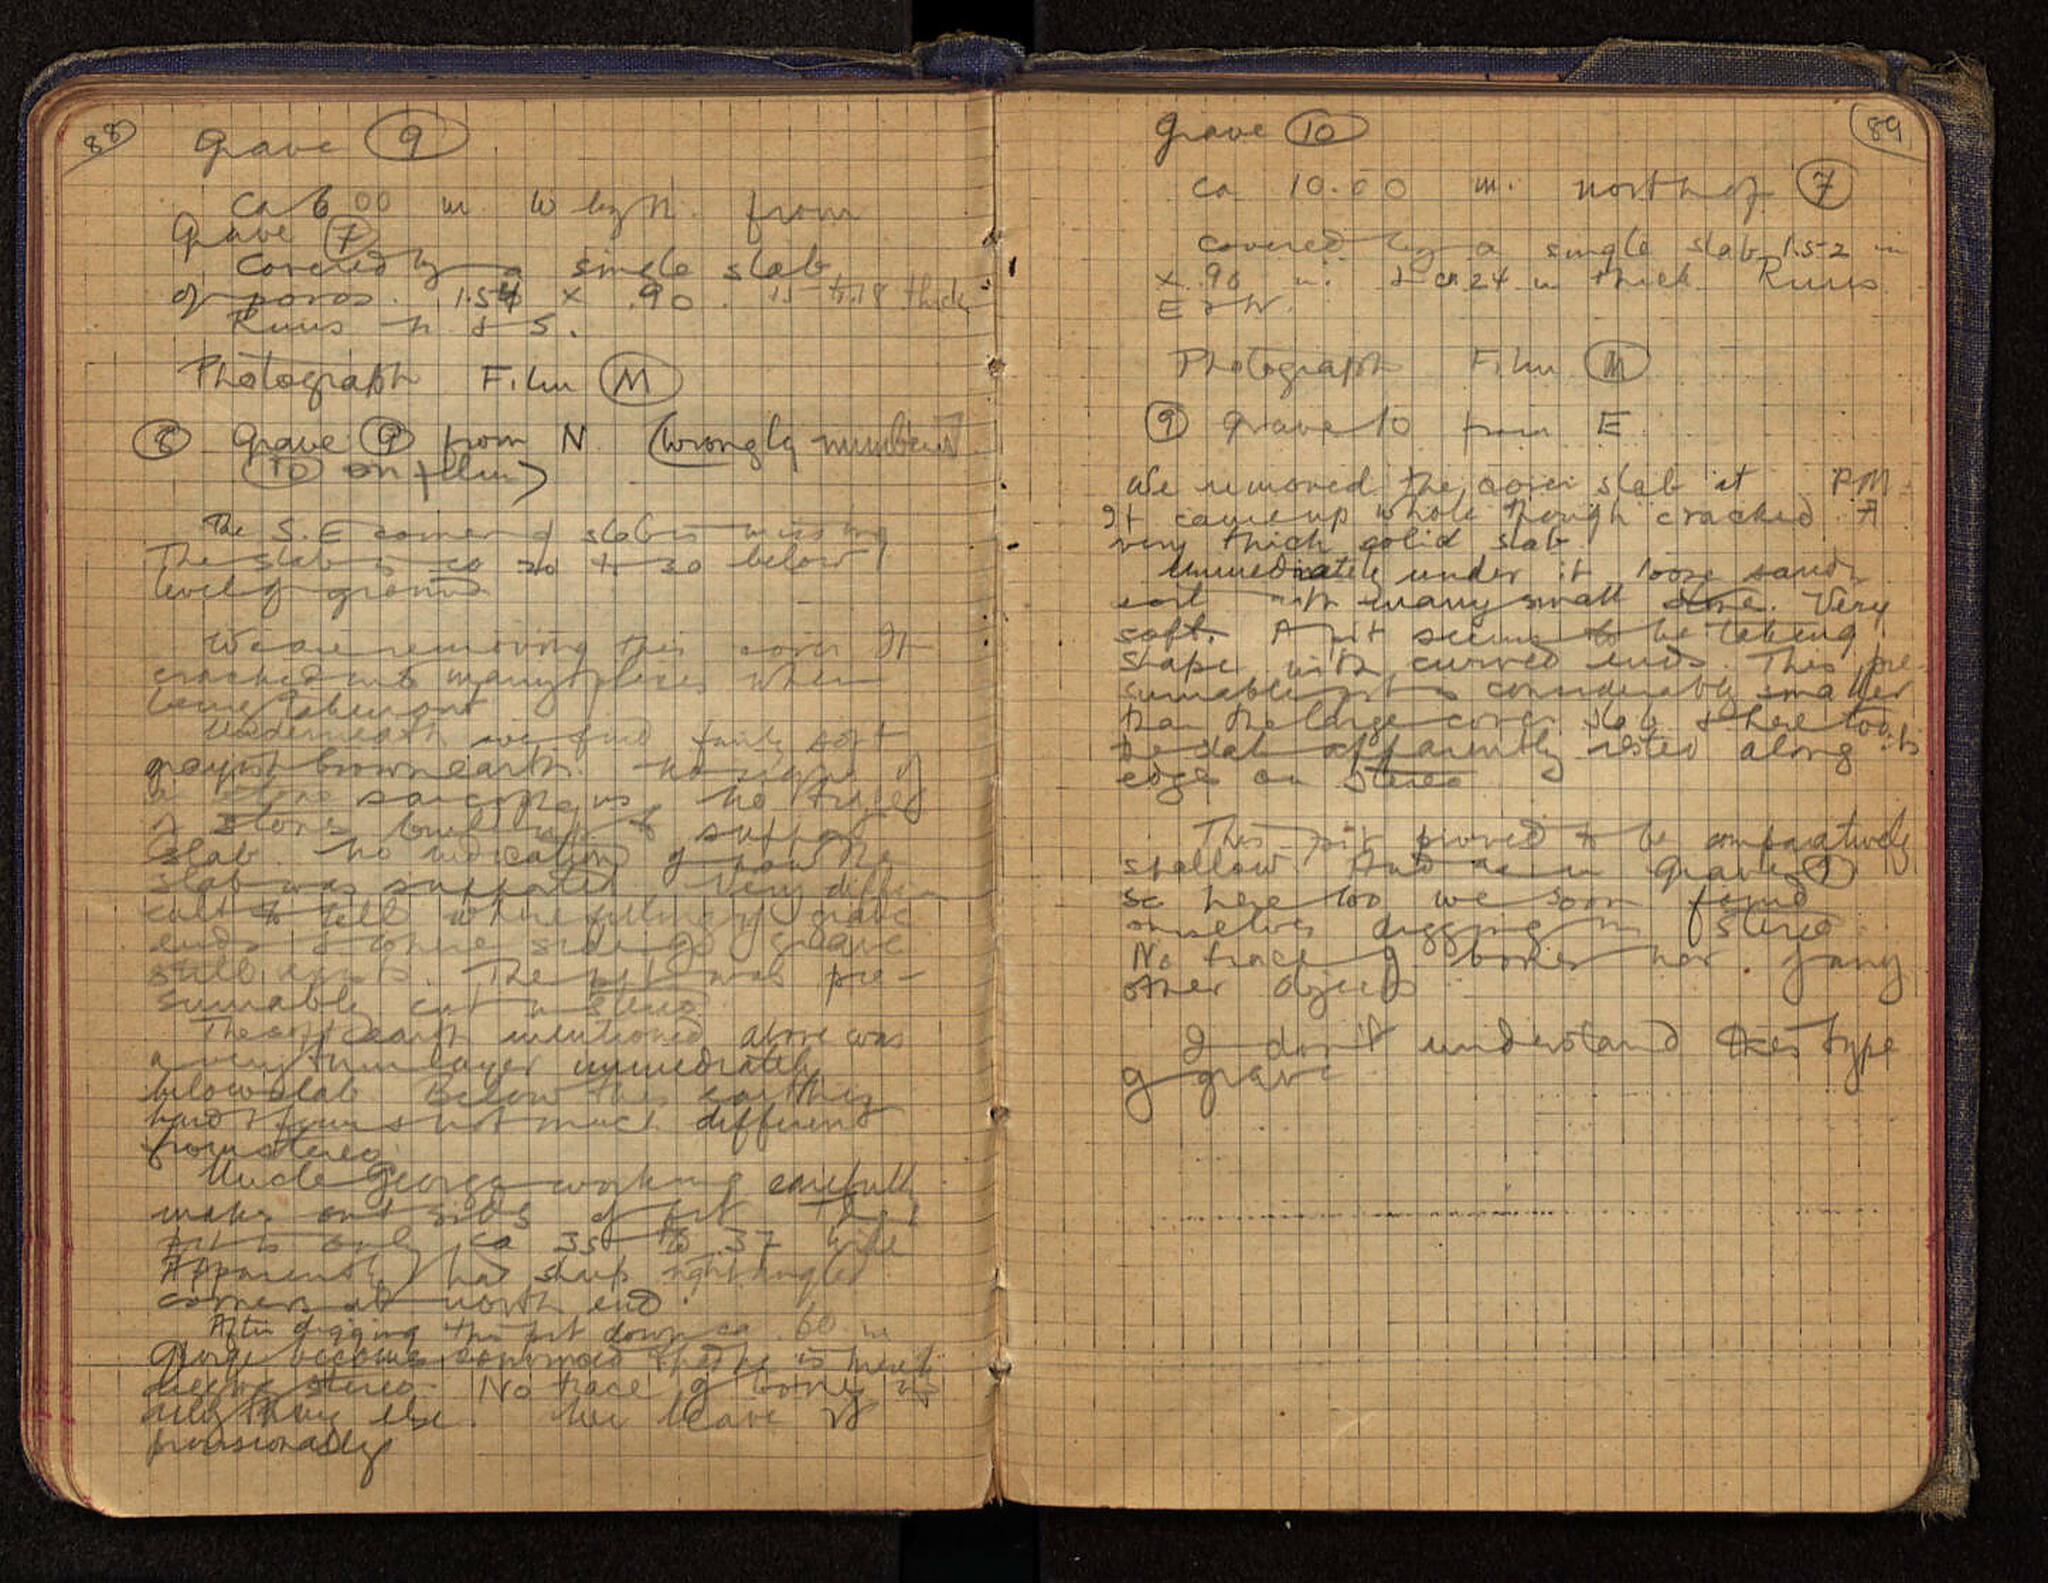 88
Grave 9
Ca 6 00 m W by N. from
Grave 7
Covered by a single slab
of poros. 1.54 x .90. .15 to .18 thick
Runs N & S.
Photograph Film M
8 Grave 9 from N (Wrongly numbered
10 on film)
The S.E corner of slab is missing
The slab is ca 20 to 30 below
level of ground
We are removing this cover It
cracked into many pieces when
being taken out
Underneath we find fairly soft
grayish brown earth. No signs of
a stone sarcophagus, no traces
of stone built up to support
slab. No indication of how the
slab was supported. Very diffi
cult to tell where filling of grave
ends & where side of grave
still exists. The pit was pre-
sumably cut in stereo
The soft earth mentioned above was
a very thin layer immediately
below slab Below this earth is
hard & firm & not much different
from stereo
Uncle George working carefully
makes out sides of pit That
pit is only ca 35 to .37 wide
Apparently has sharp right angled
corners at north end.
After digging this pit down ca .60 m
George becomes convinced that he is merely
digging stereo. No trace of bones nor
anything else. We leave it
provisionally
89
Grave 10
Ca 10.00 m. north of 7
Covered by a single slab 1.52 m
x .90 m. & ca .24 m thick Runs
E & W.
Photograph Film M
9 Grave 10 from E
We removed the cover slab at PM
It came up whole though cracked A
very thick solid slab.
Immediately under it loose sandy
soil with many small stone. Very
soft. A pit seems to be taking
shape with curved ends. This pre-
sumable pit is considerably smaller
than the large cover slab & here too
the slab apparently rested along its
edge on stereo
This pit proved to be comparatively
shallow And as in Grave 9
so here too we soon found
ourselves digging in stereo
No trace of bones nor of any
other objects
I don't understand this type
of grave